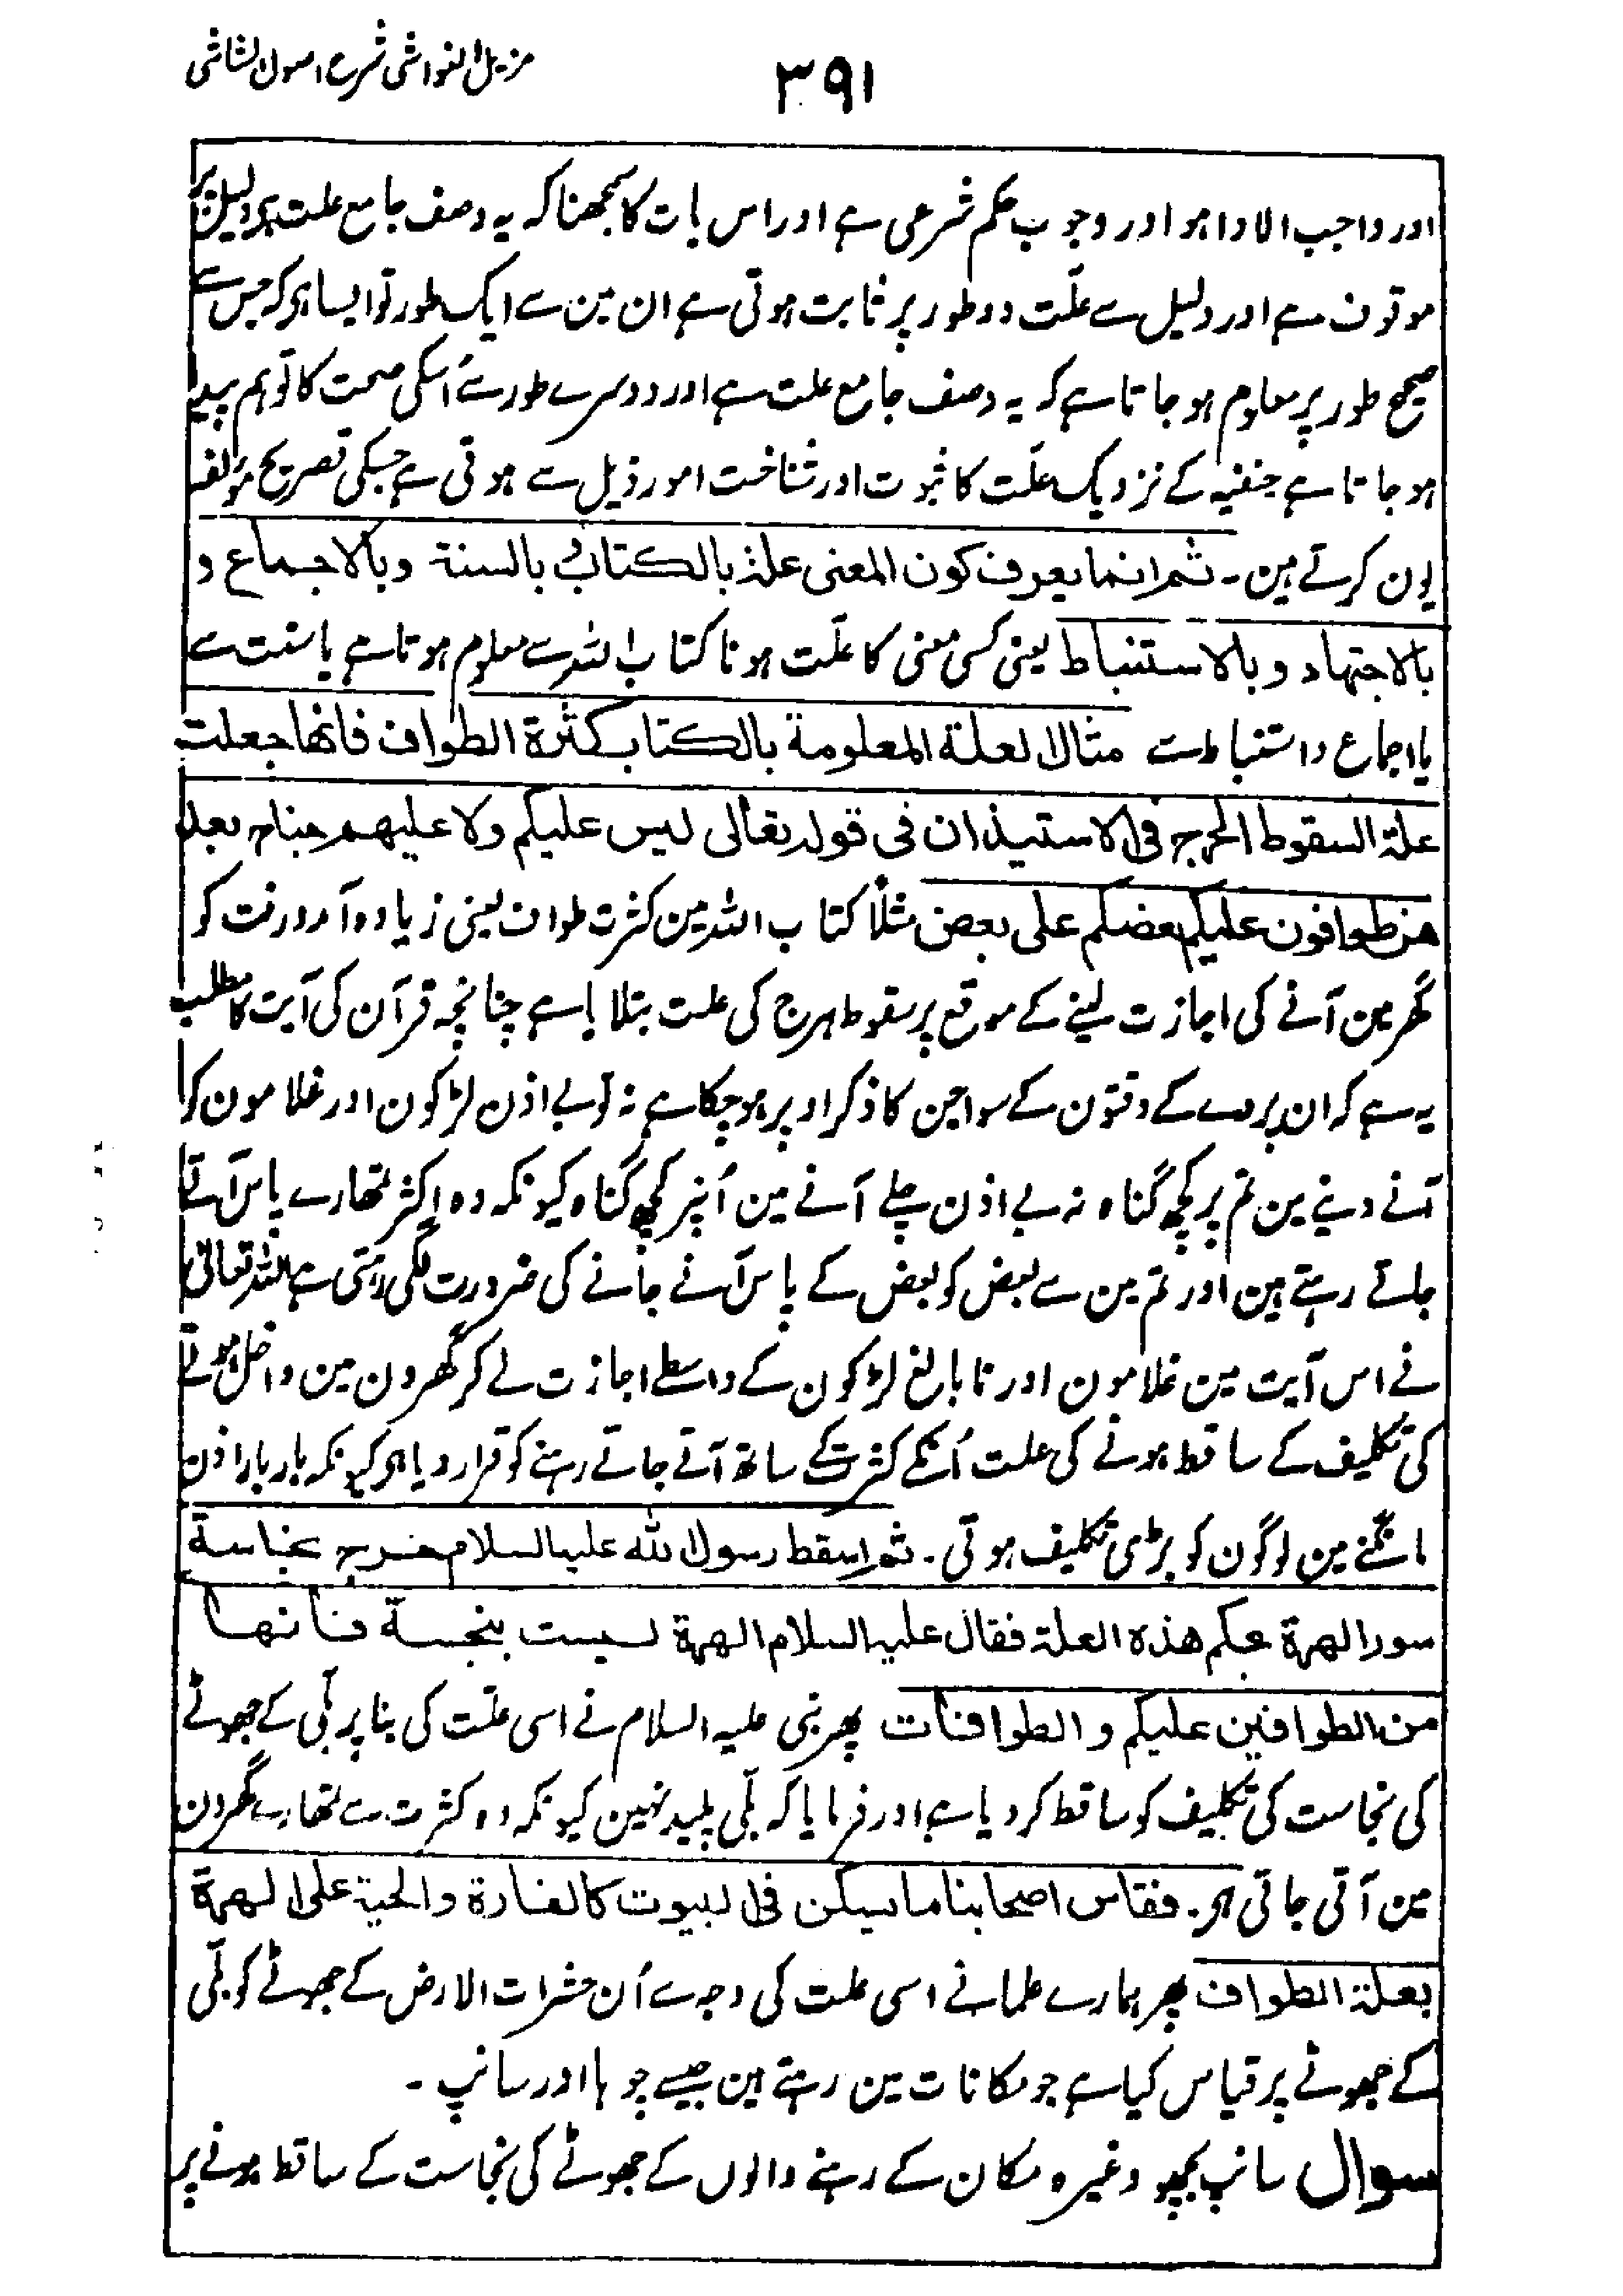 مزیل الغواشی شرح اصول الشاشی
۳۹۱
اور واجب الادا ہو اور وجوب حکم شرعی ہے اور اس بات کا سمجھنا کہ یہ وصف جامع علت ہر دلیل پر
موقوف ہے اور دلیل سے علّت دو طور پر ثابت ہوتی ہے ان مین سے ایک طور تو ایسا ہو کہ جس سے
صحیح طور پر معلوم ہو جاتا ہے کہ یہ وصف جامع علت ہے اور دوسرے طور سے اُسکی صحت کا تو ہم پیدا
ہو جاتا ہے حنفیہ کے نزدیک علّت کا ثبوت اور شناخت امور ذیل سے ہوتی ہے جسکی تصریح مؤلف
یون کرتے ہین ۔ ثم انما یعرف کون المعنی علة بالکتاب و بالسنة و بالاجماع و
بالاجتہاد و بالاستنباط یعنی کسی معنی کا علّت ہونا کتاب اللہ سے معلوم ہوتا ہے یا سنت سے
یا اجماع و استنباط سے مثال العلة المعلومة بالکتاب کثرة الطواف فانھا جعلت
علة السقوط الحرج فی الاستیذان فی قولہ تعالی لیس علیکم ولا علیھم جناح بعد
ھن طوافون علیکم بعضکم علی بعض مثلًا کتاب اللہ مین کثرت طواف یعنی زیادہ آمدو رفت کو
گھر مین آنے کی اجازت لینے کے موقع پر سقوط ہرج کی علت بتلایا ہے چنانچہ قرآن کی آیت کا مطلب
یہ ہے کہ ان پردے کے وقتون کے سوا جن کا ذکر اوپر ہو چکا ہے نہ تو بے اذن لڑکون اور غلامون کو
آنے دینے ین تم پر کچھ گناہ نہ بے اذن چلے آنے مین اُنپر کچھ گناہ کیونکہ وہ اکثر تمھارے پاس آتے
جاتے رہتے ہین اور تم مین سے بعض کو بعض کے پاس آنے جانے کی ضرورت لگی رہتی ہے اللہ تعالیٰ
نے اس آیت مین غلامون اور نابالغ لڑکون کے واسطے اجازت لے کر گھرون مین داخل ہونے
کی تکلیف کے ساقط ہونے کی علت اُنکے کثرت کے ساتھ آتے جاتے رہنے کو قرار دیا ہو کیونکہ بار بار اذن
مانگنے مین لوگون کو بڑی تکلیف ہوتی ۔ ثم اسقط رسول اللہ علیہ السلام حرج نجاسة
سور الھرة بحکم ھذہ العلة فقال علیہ السلام الھرة لیست بنجسة فانھا
من الطوافین علیکم و الطوافات پھر نبی علیہ السلام نے اسی علّت کی بنا پر بلّی کے جھوٹے
کی نجاست کی تکلیف کو ساقط کر دیا ہے اور فرمایا کہ بلّی پلید نہین کیونکہ وہ کثرت سے تمھارے گھرون
مین آتی جاتی ہو۔ فقاس اصحابنا ما یسکن فی البیوت کالفارة والحیة علی الھرة
بعلة الطواف پھر ہمارے علما نے اسی علت کی وجہ سے اُن حشرات الارض کے جھوٹے کو بلّی
کے جھوٹے پر قیاس کیا ہے جو مکانات مین رہتے ہین جیسے چوہا اور سانپ ۔
سوال سانپ بچھو وغیرہ مکان کے رہنے والوں کے جھوٹے کی نجاست کے ساقط ہونے پر